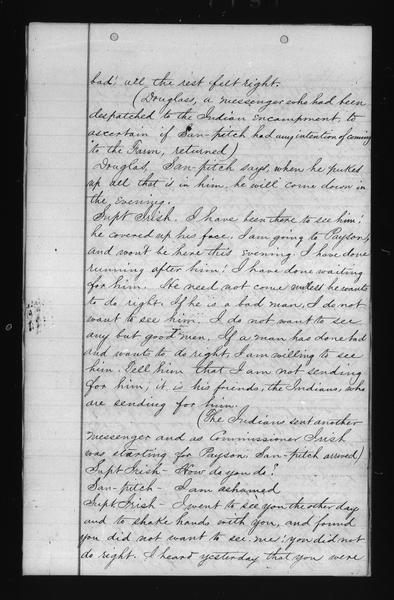 bad; all the rest felt right.
(Douglass, a messenger who had been
despatched to the Indian encampment, to
ascertain if San-pitch had any intention of coming
to the Farm, returned)
Douglas, San-pitch says, when he pukes
up all that is in him, he will come down in
the evening.
Supt Irish. I have been there to see him;
he covered up his face. I am going to Payson,
and won't be here this evening. I have done
running after him; I have done waiting
for him. He need not come unless he wants
to do right. If he is a bad man, I do not
want to see him. I do not want to see
any but good men. If a man has done bad
and wants to do right, I am willing to see
him. Tell him that I am not sending
for him, it is his friends, the Indians, who
are sending for him.
(The Indians sent another
messenger and as Commissioner Irish
was starting for Payson, San-pitch arrived)
Supt Irish - How do you do?
San-pitch - I am ashamed
Supt Irish - I went to see you the other day
and to shake hands with you, and found
you did not want to see me; you did not
do right. I heard yesterday that you were